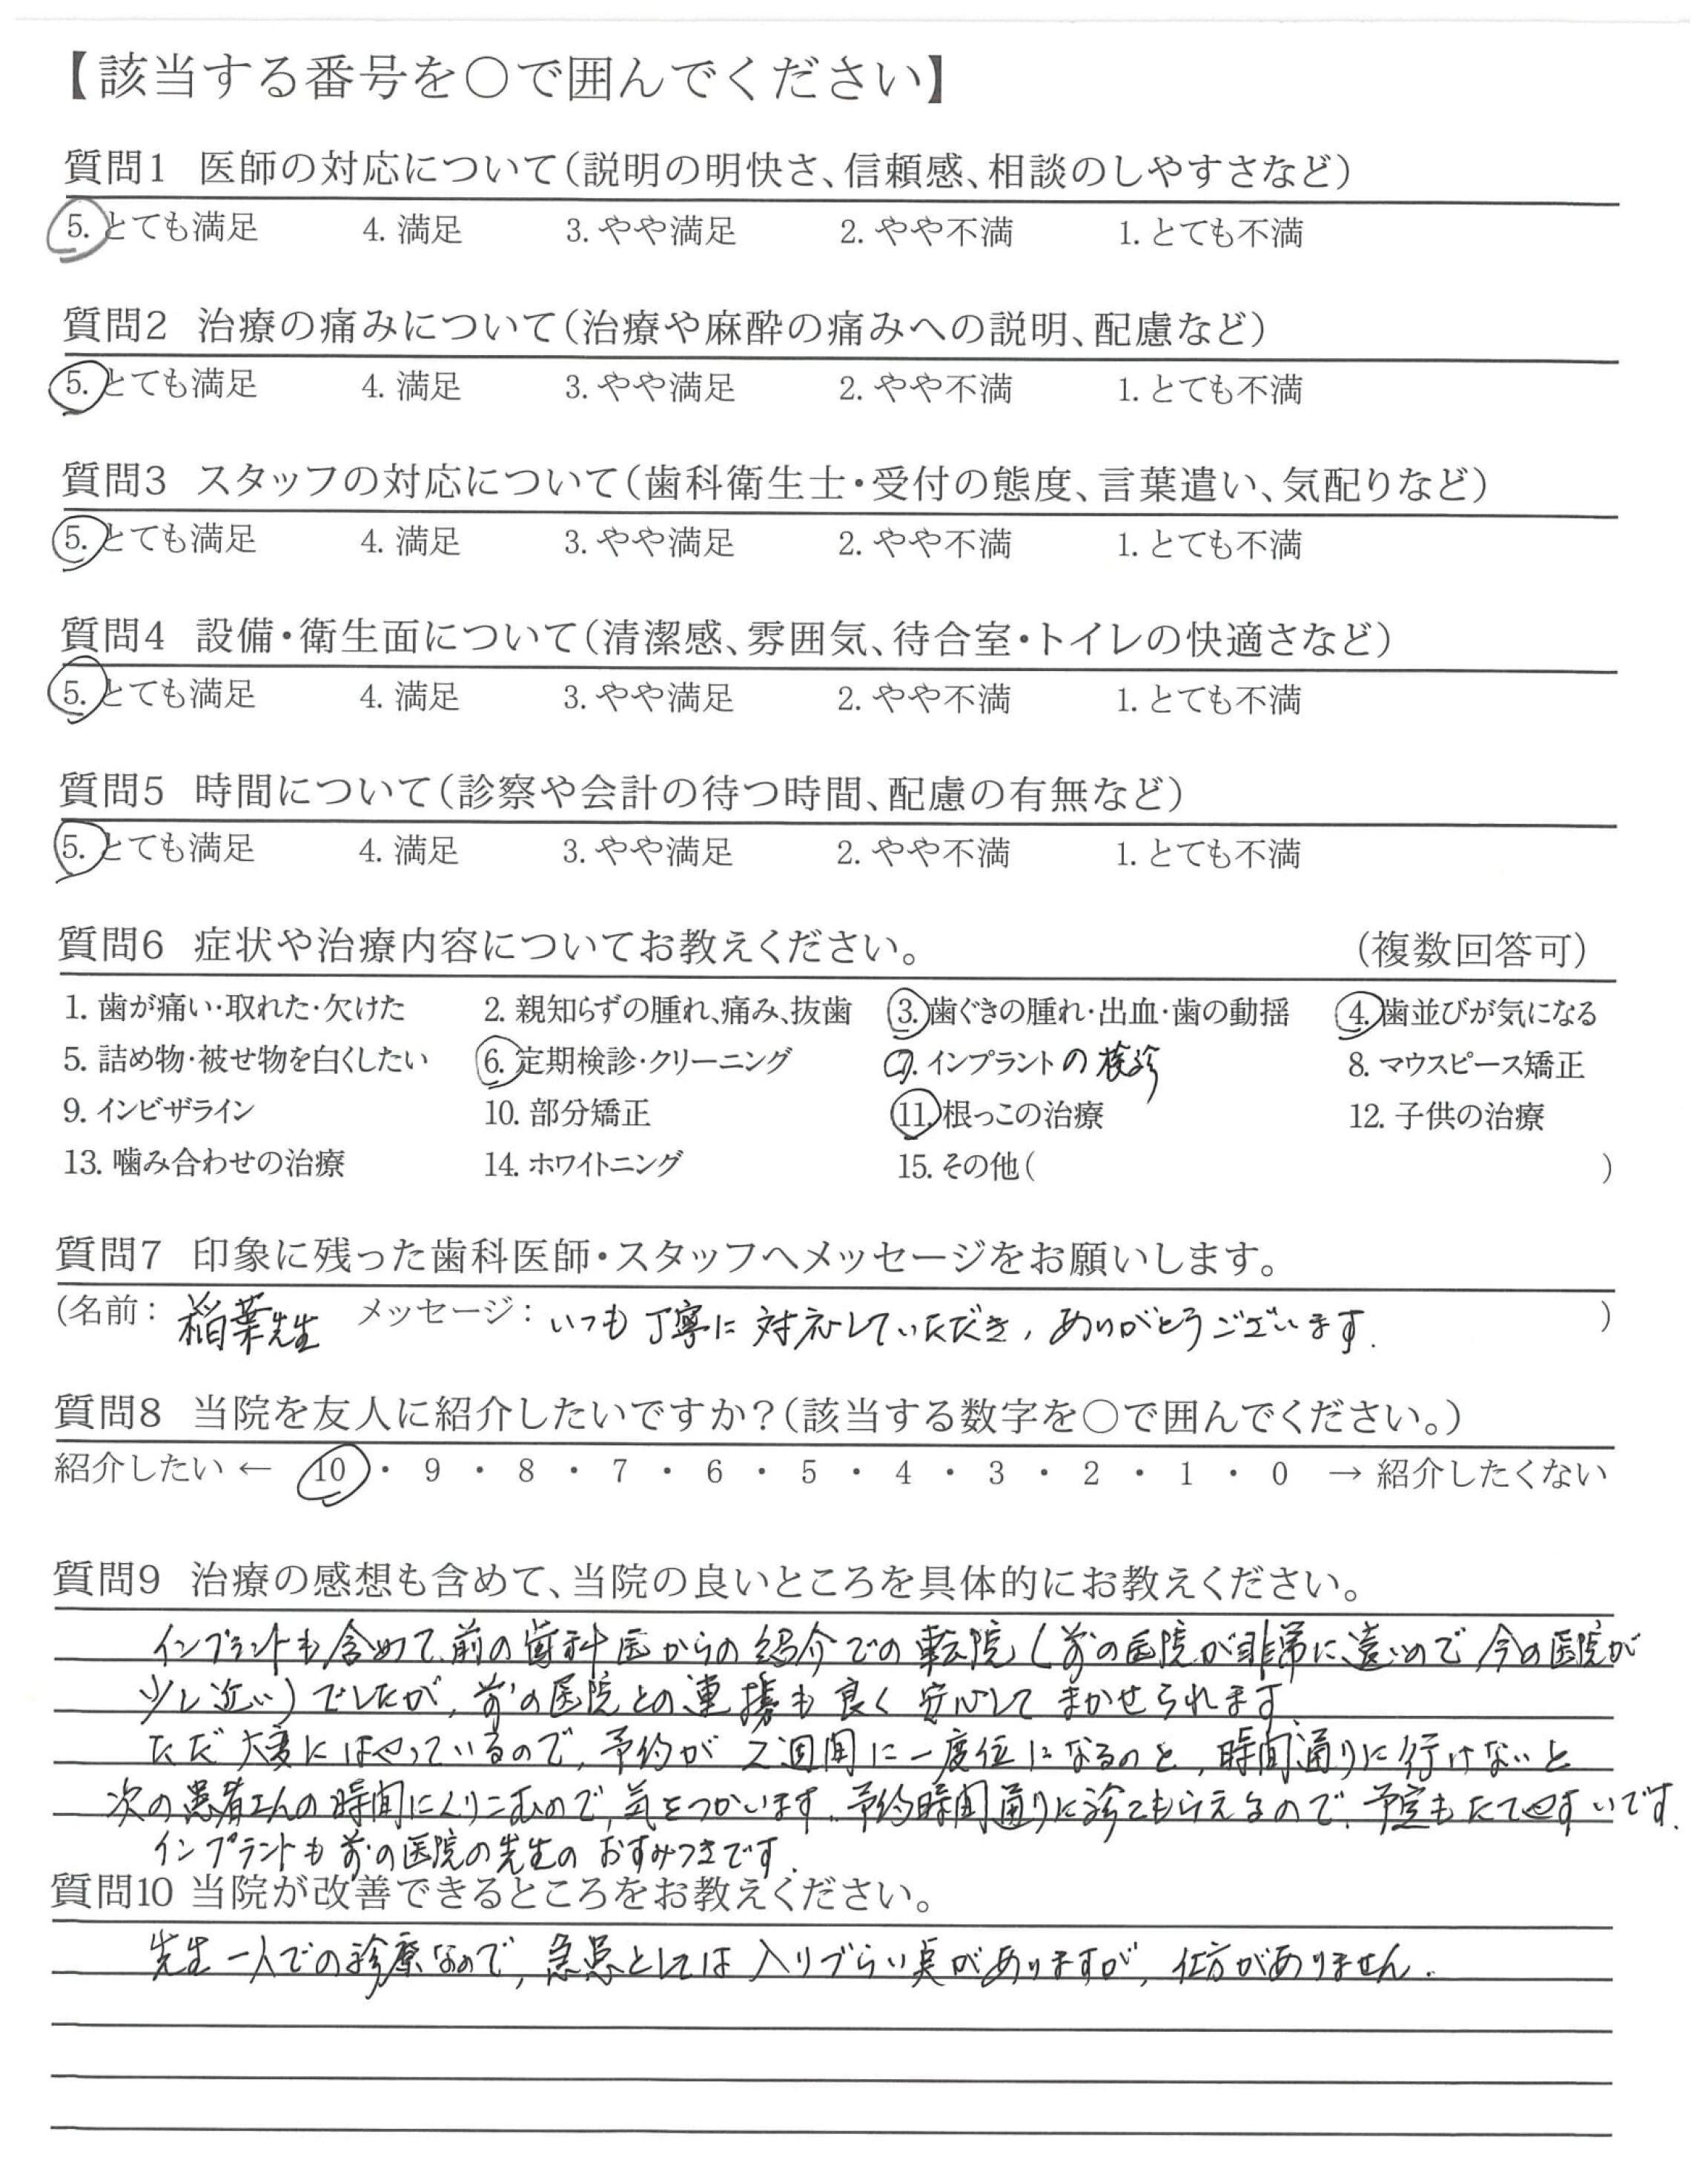 【該当する番号を〇で囲んでください】
質問1 医師の対応について(説明の明快さ、信頼感、相談のしやすさなど)
5. とても満足 4. 満足 3. やや満足 2. やや不満 1. とても不満
質問2 治療の痛みについて(治療や麻酔の痛みへの説明、配慮など)
5. とても満足 4. 満足 3. やや満足 2. やや不満 1. とても不満
質問3 スタッフの対応について(歯科衛生士・受付の態度、言葉遣い、気配りなど)
5. とても満足 4. 満足 3. やや満足 2. やや不満 1. とても不満
質問4 設備・衛生面について(清潔感、雰囲気、待合室・トイレの快適さなど)
5. とても満足 4. 満足 3. やや満足 2. やや不満 1. とても不満
質問5 時間について(診察や会計の待つ時間、配慮の有無など)
5. とても満足 4. 満足 3. やや満足 2. やや不満 1. とても不満
質問6 症状や治療内容についてお教えください。 (複数回答可)
1. 歯が痛い・取れた・欠けた 2. 親知らずの腫れ、痛み、抜歯 3. 歯ぐきの腫れ・出血・歯の動揺 4. 歯並びが気になる
5. 詰め物・被せ物を白くしたい 6. 定期検診・クリーニング 7. インプラントの検診 8. マウスピース矯正
9. インビザライン 10. 部分矯正 11. 根っこの治療 12. 子供の治療
13. 噛み合わせの治療 14. ホワイトニング 15. その他( )
質問7 印象に残った歯科医師・スタッフへメッセージをお願いします。
(名前: 稲葉先生 メッセージ: いつも丁寧に対応していただき、ありがとうございます. )
質問8 当院を友人に紹介したいですか?(該当する数字を〇で囲んでください。)
紹介したい ← 10 ・ 9 ・ 8 ・ 7 ・ 6 ・ 5 ・ 4 ・ 3 ・ 2 ・ 1 ・ 0 → 紹介したくない
質問9 治療の感想も含めて、当院の良いところを具体的にお教えください。
インプラントも含めて、前の歯科医からの紹介での転院(前の医院が非常に遠いので今の医院が
少し近い)でしたが、前の医院との連携も良く安心してまかせられます.
ただ大変にはやっているので、予約が2週間に一度位になるのと、時間通りに行けないと
次の患者さんの時間にくりこむので、気をつかいます.予約時間通りに診てもらえるので、予定もたてやすいです.
インプラントも前の医院の先生のおすみつきです.
質問10 当院が改善できるところをお教えください。
先生一人での診療なので、急患としては入りづらい点がありますが、仕方がありません.